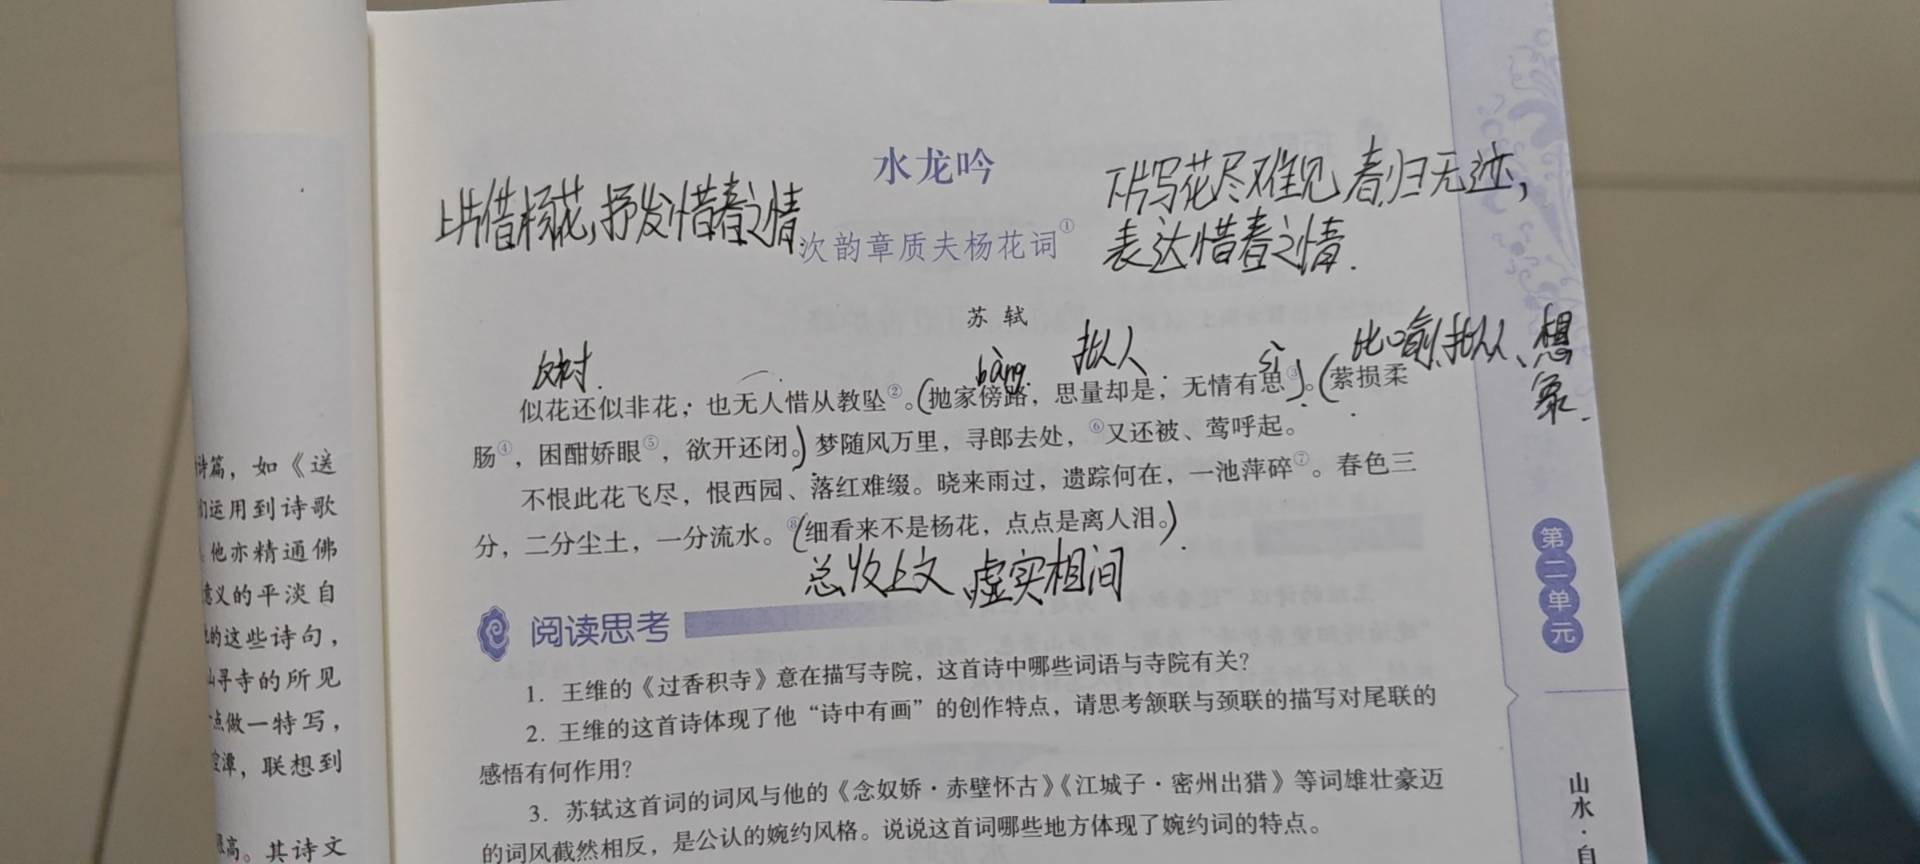 水龙吟
上片借杨花,抒发惜春之情
下片写花尽难见,春归无迹,
表达惜春之情.
次韵章质夫杨花词①
苏 轼
反衬.
bàng
拟人
sì
比喻、拟人、想
象.
似花还似非花，也无人惜从教坠②。(抛家傍路，思量却是，无情有思③)。(萦损柔
肠④，困酣娇眼⑤，欲开还闭。)梦随风万里，寻郎去处，⑥又还被、莺呼起。
不恨此花飞尽，恨西园、落红难缀。晓来雨过，遗踪何在，一池萍碎⑦。春色三
分，二分尘土，一分流水。⑧(细看来不是杨花，点点是离人泪。)
总收上文,虚实相间
阅读思考
1. 王维的《过香积寺》意在描写寺院，这首诗中哪些词语与寺院有关？
2. 王维的这首诗体现了他“诗中有画”的创作特点，请思考颔联与颈联的描写对尾联的
感悟有何作用？
3. 苏轼这首词的词风与他的《念奴娇·赤壁怀古》《江城子·密州出猎》等词雄壮豪迈
的词风截然相反，是公认的婉约风格。说说这首词哪些地方体现了婉约词的特点。
诗篇，如《送
们运用到诗歌
他亦精通佛
意义的平淡自
的这些诗句，
山寻寺的所见
点做一特写，
空潭，联想到
很高。其诗文
第二单元
山水·自